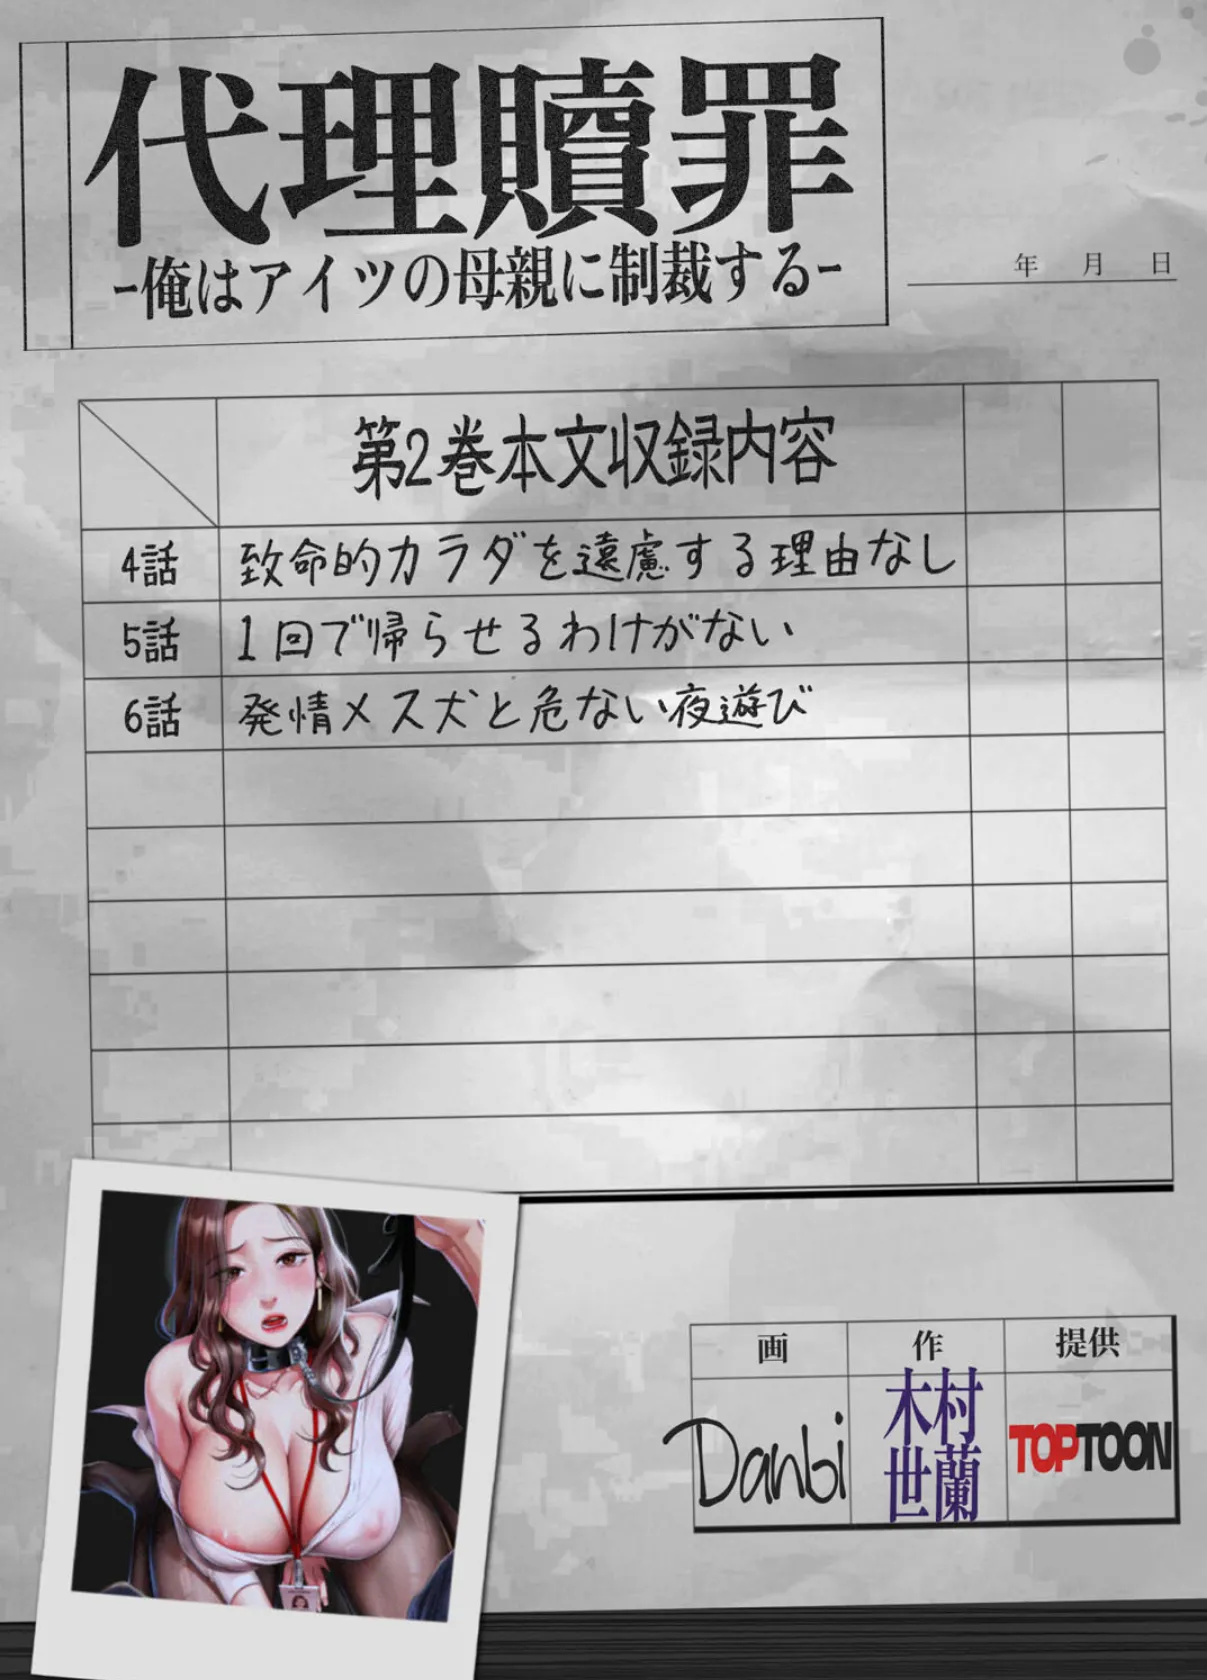 代理贖罪
-俺はアイツの母親に制裁する-
年 月 日
第2巻本文収録内容
4話 致命的カラダを遠慮する理由なし
5話 1回で帰らせるわけがない
6話 発情メス犬と危ない夜遊び
画 作 提供
Danbi 木村世蘭 TOPTOON